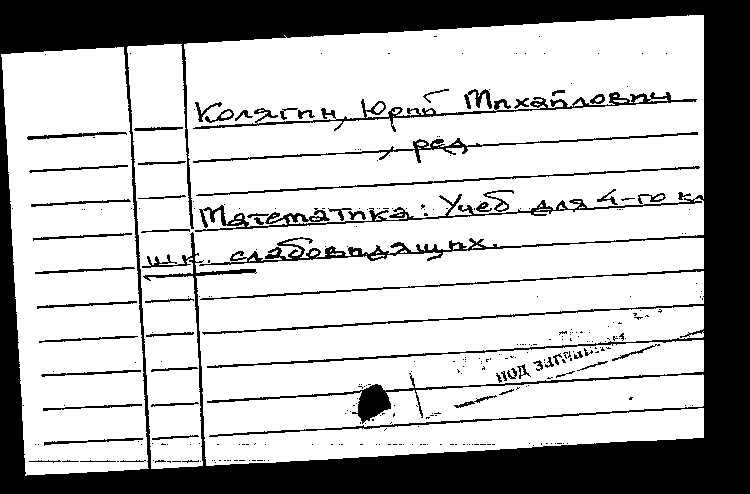 Колягин, Юрий Михайлович
, ред.
Математика: Учеб. для 4-го кл
шк. слабовидящих.
под заглавием